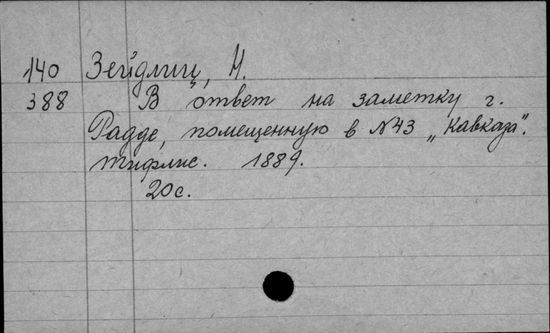 140 Зейдлиц, Н.
388 В ответ на заметку г.
Радде, помещенную в №43 „Кавказа".
Тифлис. 1889.
20с.